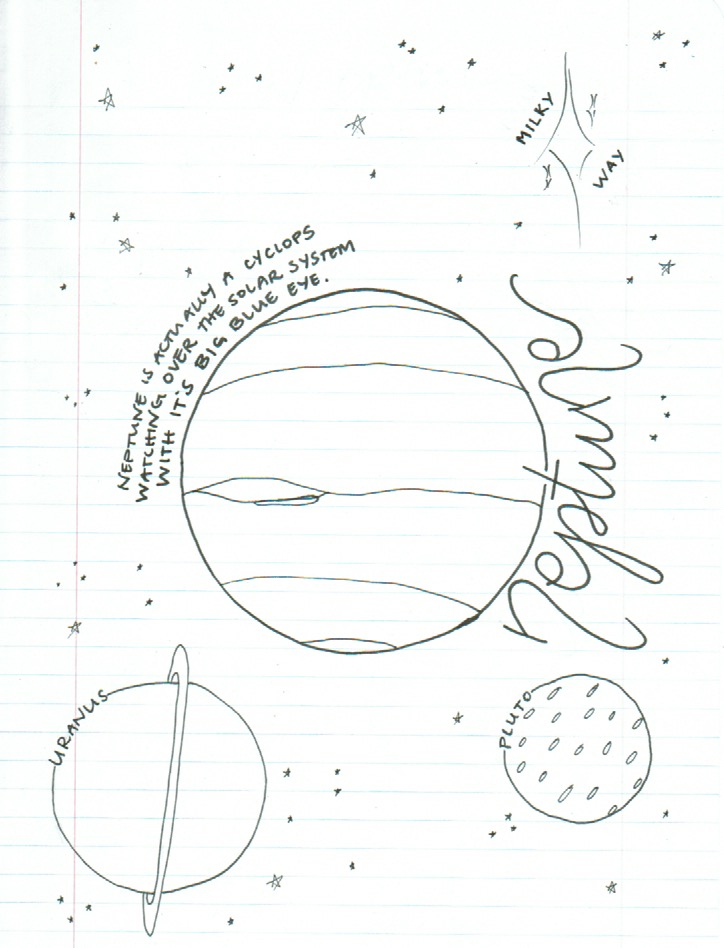 MILKY
WAY
NEPTUNE IS ACTUALLY A CYCLOPS
WATCHING OVER THE SOLAR SYSTEM
WITH IT'S BIG BLUE EYE.
neptune
URANUS
PLUTO